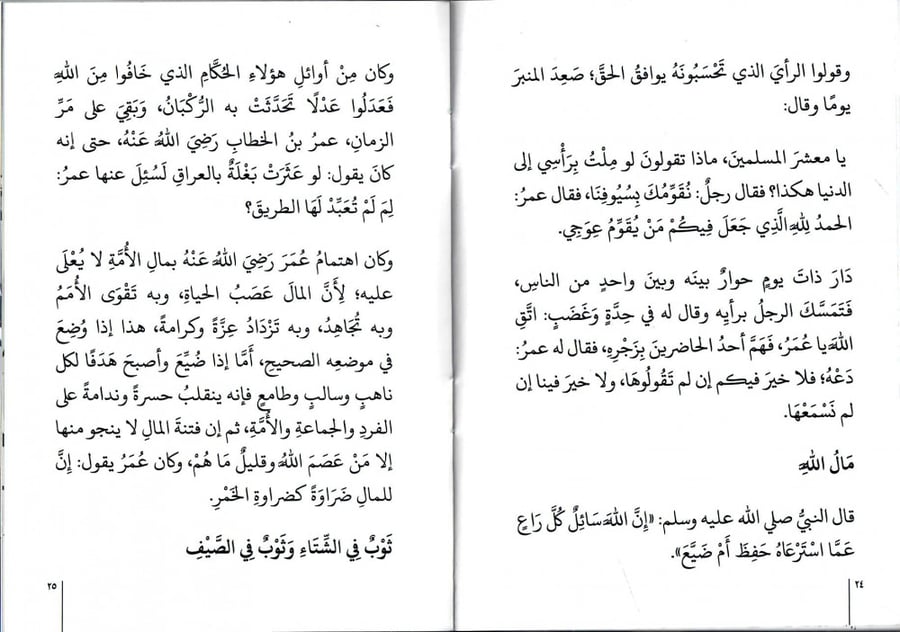 وقولوا الرأيَ الذي تَحْسَبُونَهُ يوافقُ الحقَّ؛ صَعِدَ المنبرَ
يومًا وقال:
يا معشرَ المسلمينَ، ماذا تقولونَ لو مِلْتُ بِرَأْسِي إلى
الدنيا هكذا؟ فقال رجلٌ: نُقَوِّمُكَ بِسُيُوفِنَا، فقال عمرُ:
الحمدُ لِلهِ الَّذِي جَعَلَ فِيكُمْ مَنْ يُقَوِّمُ عِوَجِي.
دَارَ ذاتَ يومٍ حوارٌ بينَه وبينَ واحدٍ من الناسِ،
فَتَمَسَّكَ الرجلُ برأيِه وقال له في حِدَّةٍ وَغَضَبٍ: اتَّقِ
اللهَ يا عُمَرُ، فَهَمَّ أحدُ الحاضرينَ بِزَجْرِهِ، فقال له عمرُ:
دَعْهُ؛ فلا خيرَ فيكم إن لم تَقُولُوهَا، ولا خيرَ فينا إن
لم نَسْمَعْهَا.
مَالُ اللهِ
قال النبيُّ صلي الله عليه وسلم: «إِنَّ اللهَ سَائِلٌ كُلَّ رَاعٍ
عَمَّا اسْتَرْعَاهُ حَفِظَ أَمْ ضَيَّعَ».
٢٤
وكان مِنْ أوائلِ هؤلاءِ الحُكَّامِ الذي خَافُوا مِنَ اللهِ
فَعَدَلُوا عَدْلًا تَحَدَّثَتْ به الرُّكْبَانُ، وَبَقِيَ على مَرِّ
الزمانِ، عمرُ بنُ الخطابِ رَضِيَ اللهُ عَنْهُ، حتى إنه
كانَ يقول: لو عَثَرَتْ بَغْلَةٌ بالعراقِ لَسُئِلَ عنها عمرُ:
لِمَ لَمْ تُعَبِّدْ لَهَا الطريقَ؟
وكان اهتمامُ عُمَرَ رَضِيَ اللهُ عَنْهُ بمالِ الأُمَّةِ لا يُعْلَى
عليه؛ لِأَنَّ المالَ عَصَبُ الحياةِ، وبه تَقْوَى الأُمَمُ
وبه تُجَاهِدُ، وبه تَزْدَادُ عِزَّةً وكرامةً، هذا إذا وُضِعَ
في موضعِه الصحيحِ، أَمَّا إذا ضُيِّعَ وأصبحَ هَدَفًا لكل
ناهبٍ وسالبٍ وطامعٍ فإنه ينقلبُ حسرةً وندامةً على
الفردِ والجماعةِ والأُمَّةِ، ثم إن فتنةَ المالِ لا ينجو منها
إلا مَنْ عَصَمَ اللهُ وقليلٌ مَا هُمْ، وكان عُمَرُ يقول: إِنَّ
للمالِ ضَرَاوَةً كضراوةِ الخَمْرِ.
ثَوْبٌ فِي الشِّتَاءِ وَثَوْبٌ فِي الصَّيْفِ
٢٥